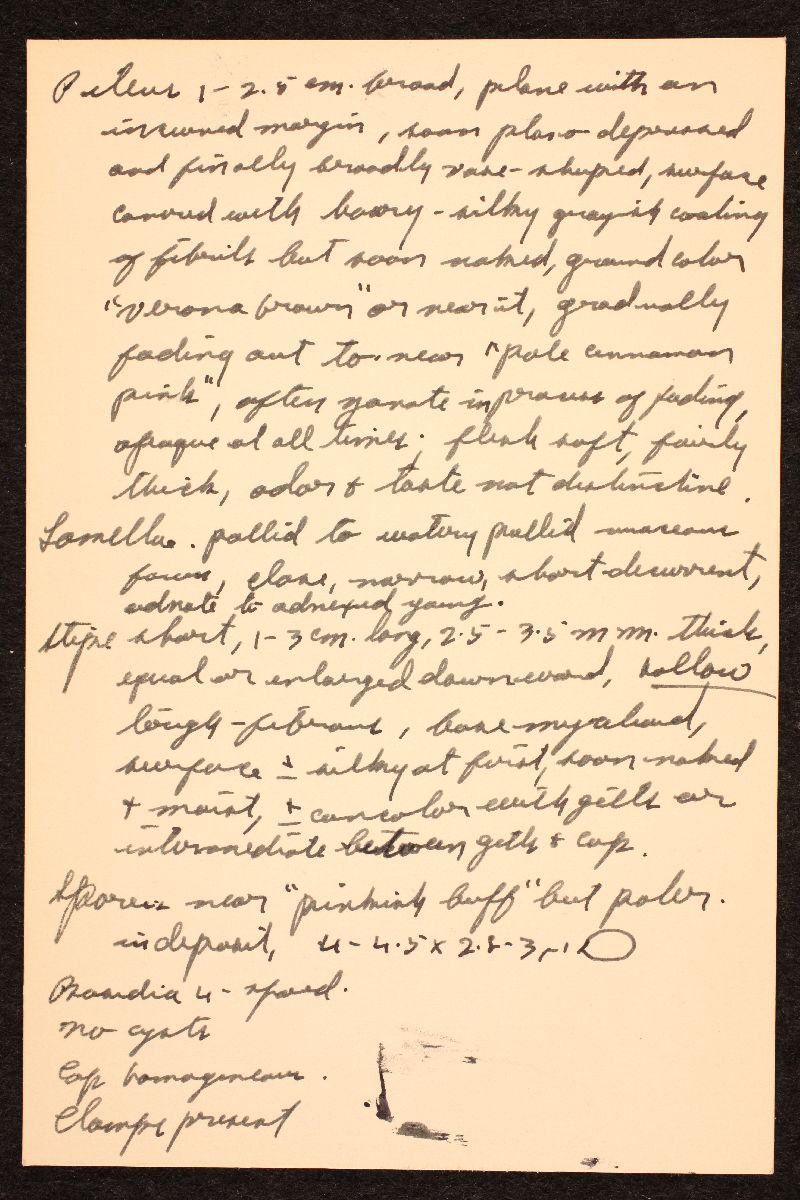 Pileus 1 - 2.5 cm. broad, plane with an
incurved margin, soon plano-depressed
and finally broadly vase-shaped, surface
covered with hoary-silky grayish coating
of fibrils but soon naked, ground color
"verona brown" or near it, gradually
fading out to near "pale cinnamon
pink", often zonate in process of fading,
opaque at all times; flesh soft, fairly
thick, odor & taste not distinctive.
Lamellae. pallid to watery pallid
fawn, close, narrow, short-decurrent,
adnate to adnexed young.
Stipe short, 1 - 3 cm. long, 2.5 - 3.5 mm. thick,
equal or enlarged downward, hollow
tough-fibrous, base myceloid,
surface ± silky at first, soon naked
+ moist, ± concolor with gills or
intermediate between gills & cap.
Spores near "pinkish buff" but paler.
in deposit, 4 - 4.5 x 2.8 - 3
Basidia 4 - spored.
No cysts
Cap homogeneous.
Clamps present